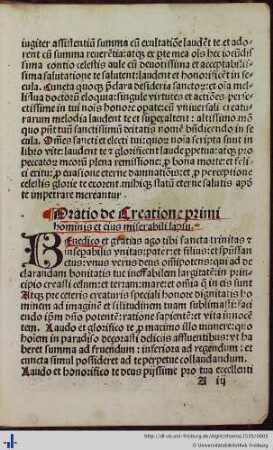 iugiter assistentiũ summa cũ exultatiõe laudẽt te et ado-
rent cũ summa reuerẽtia: atqȝ et p̱ te mea oīs hec iocũdis
sima contio celestis aule cũ deuotissima et acceptabilis-
sima salutatione te salutent: laudent et honorificẽt in se-
cula. Cuncta quoqȝ p̄clara desideria sanctoȝ: et oīa mel-
liflua doctoȝ eloquia: singule virtutes et actiões perfe-
ctissime in tui noīs honore opatẽ: cũ vniuersali creatu-
rarum melodia laudent te et superexaltent : altissimũ no-
men tuũ sanctissimũ deitatis nomẽ bñdicendo in se-
cula. Oẽs sancti et electi tui: quoȝ noīa scripta sunt in
libro vite: laudent te et glorificent laude ppetua: atqȝ pro
peccatoȝ meorũ plena remissione, p̱ bona morte et felici
exitu, p̱ euasione eterne damnationis: et p̱ perceptione
celestis glorie te exorent. mihiqȝ statũ eterne salutis apõ
te impetrare mereantur.
Oratio de Creatione primi
hominis et eius miserabili lapsu.
BEnedico et gratias ago tibi sancta trinitas et
inseparabilis vnitas: pater: et filius: et spũssan-
ctus: vnus verus deus omnipotens: qui ad de-
clarandam bonitatis tue ineffabilem largitatẽ: in prin-
cipio creasti celum: et terram: mare: et omīa q̃ in eis sunt
Atqȝ pre ceteris creaturis speciali honore dignitatis ho
minem ad imaginẽ et similitudinem tuam sublimasti: ac
in omni bono cõdidisti potentẽ: ratione sapientẽ: et vita innocẽ
tem. Laudo et glorifico te p̱ maximo illo munere: quo
hoiem in paradiso decorasti delicijs affluentibus: vt ha
beret summa ad fruendum : inferiora ad regendum : et
cuncta simul possideret ad te perpetue collaudandum.
Laudo et honorifico te deus pijssime pro tua excellenti
A iij
http://dl.ub.uni-freiburg.de/diglit/thomas1520/0003
© Universitätsbibliothek Freiburg